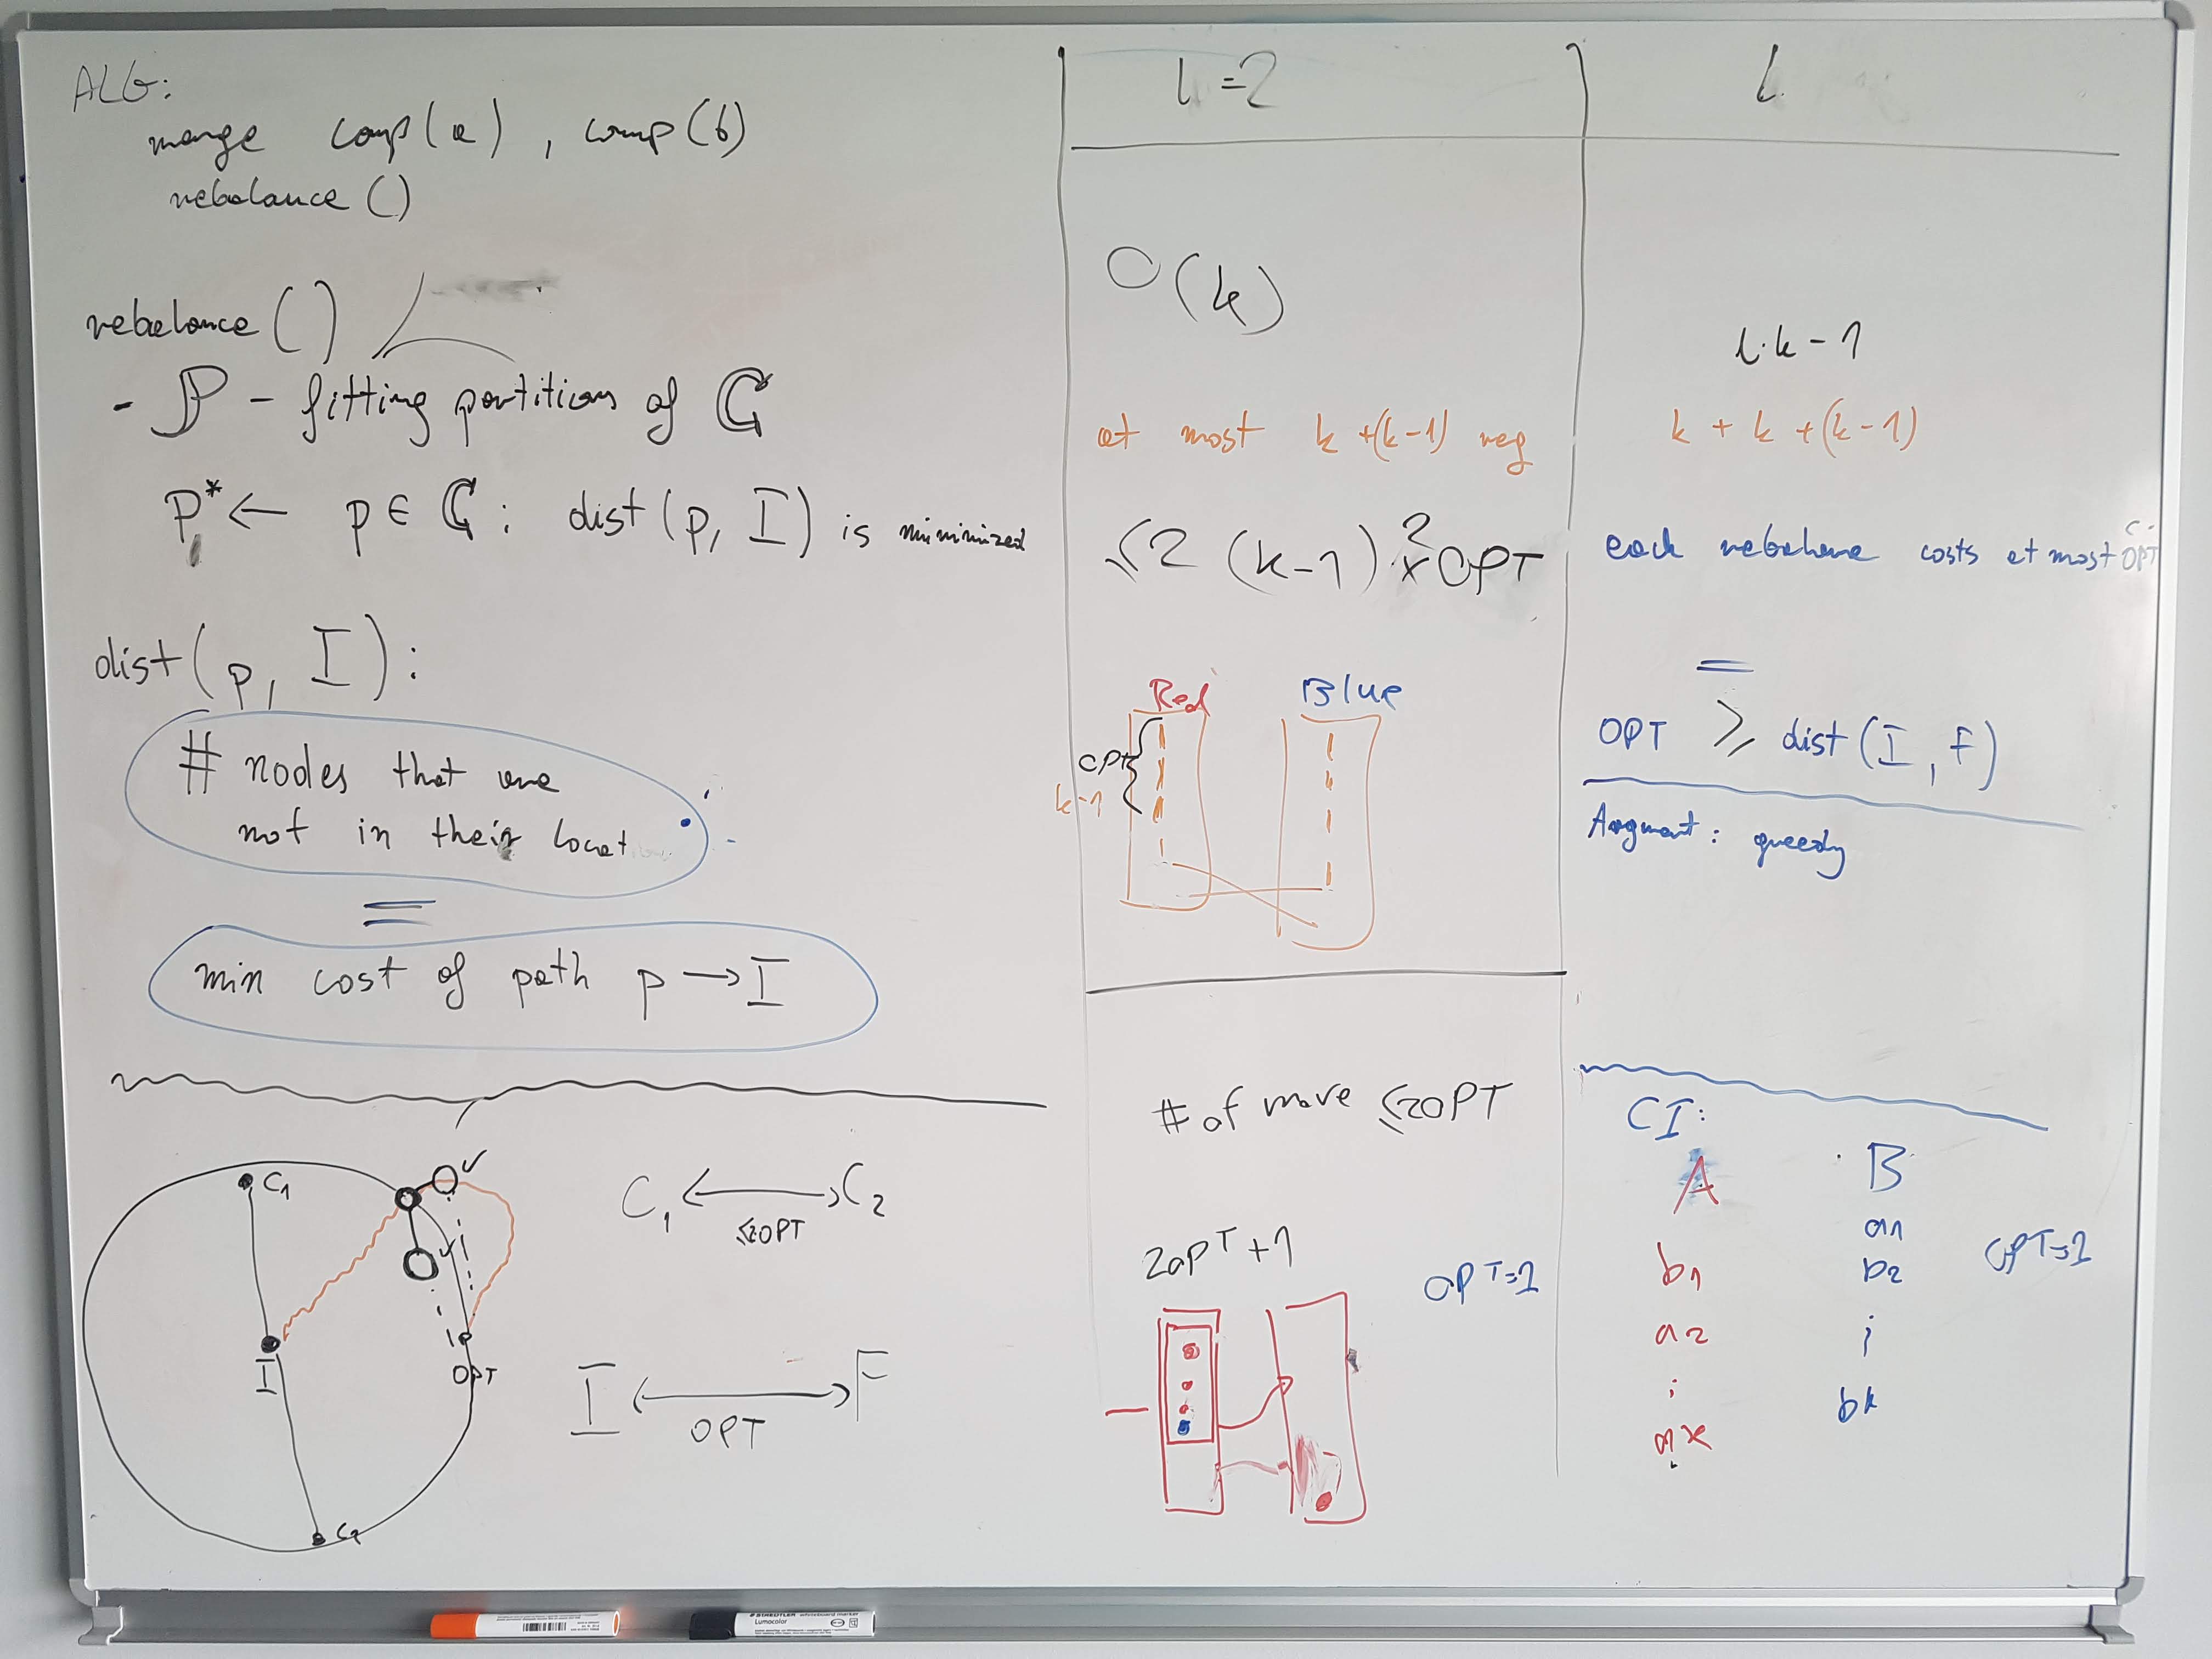 ALG:
merge comp(a), comp(b)
rebalance()
rebalance()
- P - fitting partitions of C
P* ← p ∈ C : dist(p, I) is minimized
dist(p, I):
# nodes that are
not in their locat
=
min cost of path p → I
C1
I
C2
OPT
C1 ↔ C2
≤2OPT
I ↔ F
OPT
l=2
O(k)
at most k+(k-1) req
≤2 (k-1)² × OPT
Red Blue
OPT
k-1
# of move ≤2OPT
2OPT+1
OPT=1
l
l·k-1
k + k + (k-1)
each rebalance costs at most OPT
=
OPT ≥ dist(I, F)
Argument: greedy
CI:
A B
a1
b1 b2
OPT=1
a2
bk
STAEDTLER
Lumocolor